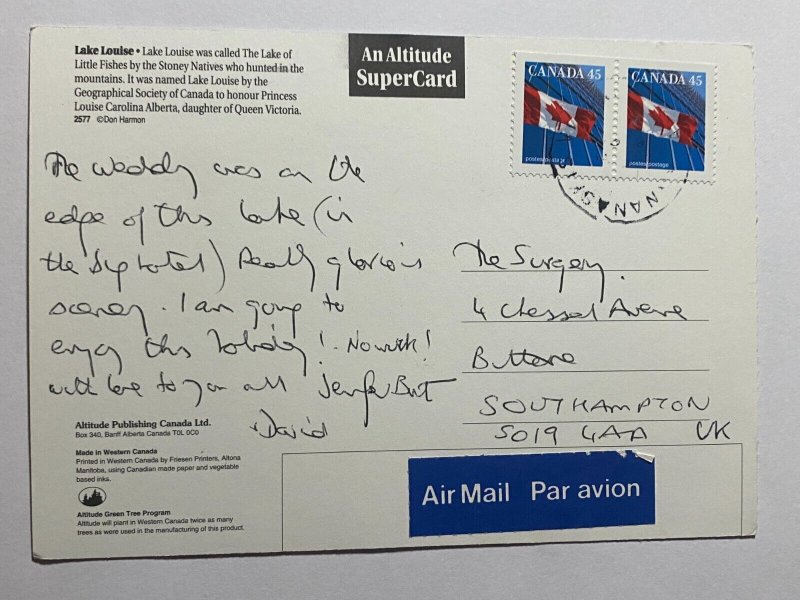 Lake Louise • Lake Louise was called The Lake of
Little Fishes by the Stoney Natives who hunted in the
mountains. It was named Lake Louise by the
Geographical Society of Canada to honour Princess
Louise Carolina Alberta, daughter of Queen Victoria.
2577 ©Don Harmon
An Altitude
SuperCard
CANADA 45
postes/postage
CANADA 45
postes/postage
The wedding was on the
edge of this lake (in
the big hotel) Really glorious
scenery. I am going to
enjoy this holiday! No work!
with love to you all
David
The Surgery.
4 Chessel Avenue
Bitterne
SOUTHAMPTON
SO19 4AA UK
Altitude Publishing Canada Ltd.
Box 340, Banff Alberta Canada T0L 0C0
Made in Western Canada
Printed in Western Canada by Friesen Printers, Altona
Manitoba, using Canadian made paper and vegetable
based inks.
Altitude Green Tree Program
Altitude will plant in Western Canada twice as many
trees as were used in the manufacturing of this product.
Air Mail Par avion